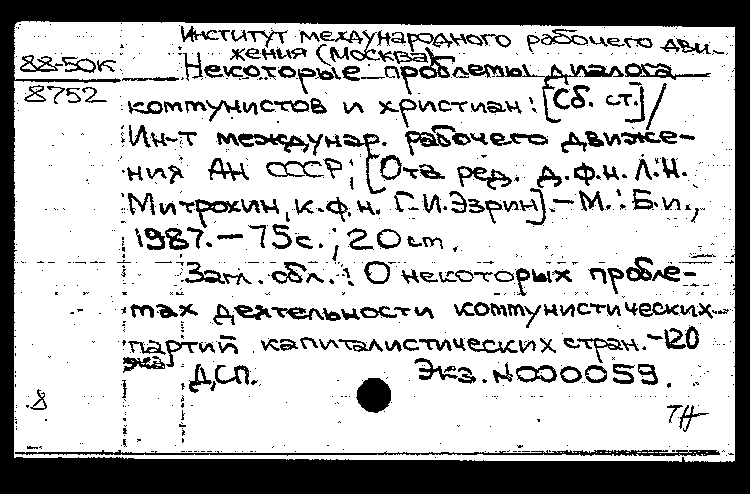 Институт международного рабочего дви-
жения (Москва)
88-50К
Некоторые проблемы диалога
8752
коммунистов и христиан: [Сб. ст.] /
Ин-т междунар. рабочего движе-
ния АН СССР; [Отв. ред. д.ф.н. Л.Н.
Митрохин, к.ф.н. Г.И. Эзрин]. – М.: Б.и.,
1987. – 75 с.; 20 см.
Загл. обл.: О некоторых пробле-
мах деятельности коммунистических
партий капиталистических стран. – 120
экз.
ДСП. Экз. N000059.
8
ТН